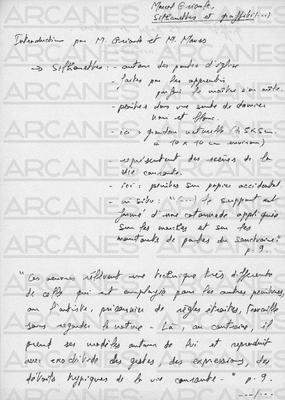 Marcel Griaule,
Silhouettes et graffiti (...)
Introduction par M. Griaule et M. Mauss
→ Silhouettes : - autour des portes d'églises
- faites par les apprentis
parfois le maître d'un côté
- peintes dans une sorte de
noir et blanc.
- ici : grandeur naturelle (5x5cm
à 10 x 10 cm environ)
- représentent des scènes de la
vie courante.
- ici : peintes sur papier occidental
- in situ : "(...) le support est
formé d'une cotonnade appliquée
sur les marches et sur les
montants de portes du sanctuaire"
p. 9.
"Ces œuvres relèvent une technique très différente
de celle qui est employée pour les autres peintures,
où l'artiste, prisonnier de règles étroites, travaille
sans regarder la nature. Là, au contraire, il
prend ses modèles autour de lui et reproduit
avec exactitude des gestes, des expressions, des
détails typiques de la vie courante." p. 9.
---/---
ARCANES